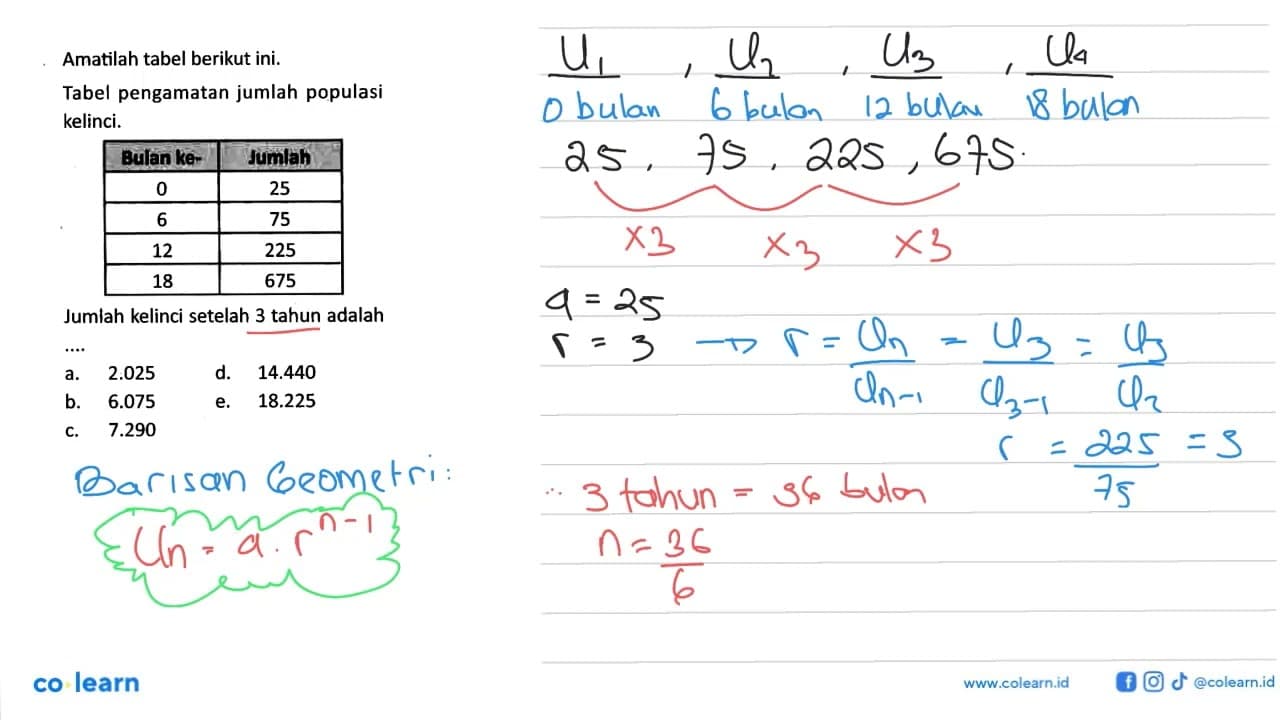 Amatilah tabel berikut ini.
Tabel pengamatan jumlah populasi
kelinci.
Bulan ke- Jumlah
0 25
6 75
12 225
18 675
Jumlah kelinci setelah 3 tahun adalah
....
a. 2.025 d. 14.440
b. 6.075 e. 18.225
c. 7.290
Barisan Geometri:
Un = a . r^n-1
U1 , U2 , U3 , U4
0 bulan 6 bulan 12 bulan 18 bulan
25 , 75 , 225 , 675.
×3 ×3 ×3
a = 25
r = 3 → r = Un/Un-1 = U3/U3-1 = U3/U2
r = 225/75 = 3
∴ 3 tahun = 36 bulan
n = 36/6
co learn
www.colearn.id @colearn.id